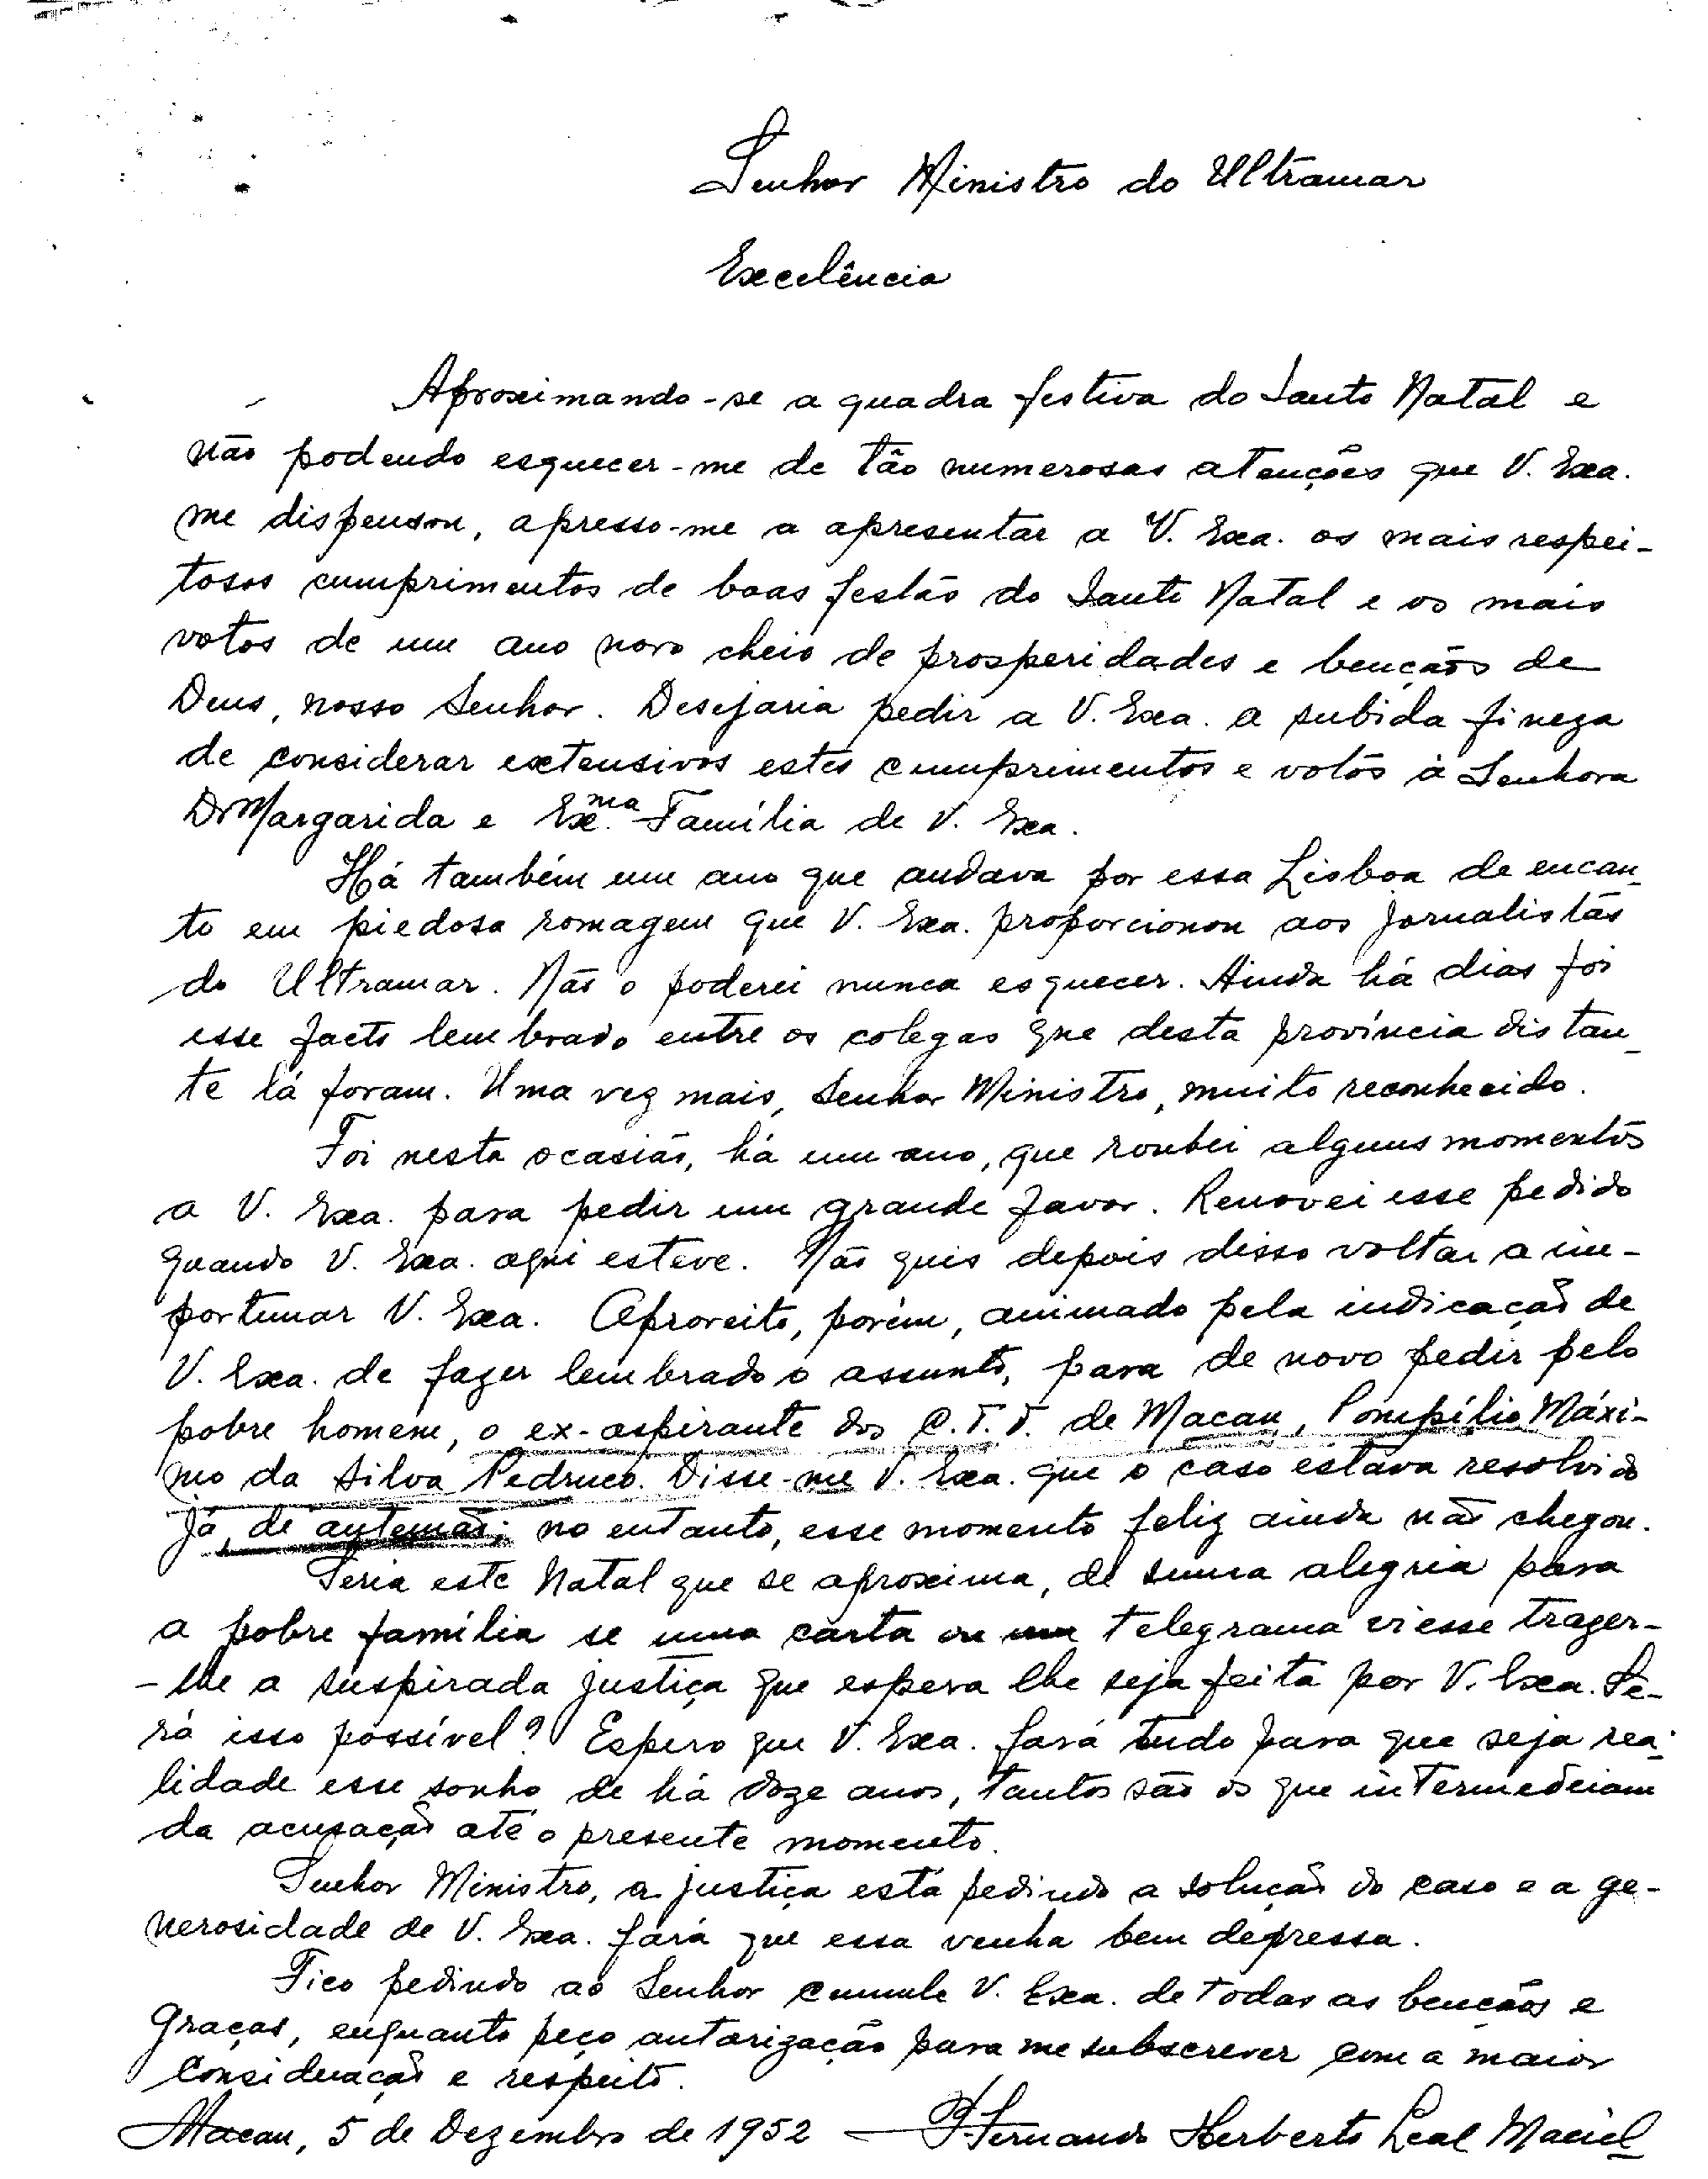 Senhor Ministro do Ultramar
Excelência
Aproximando-se a quadra festiva do Santo Natal e
não podendo esquecer-me de tão numerosas atenções que V. Exa.
me dispensou, apresso-me a apresentar a V. Exa. os mais respei-
tosos cumprimentos de boas festas do Santo Natal e os mais
votos de um ano novo cheio de prosperidades e bençãos de
Deus, nosso Senhor. Desejaria pedir a V. Exa. a subida fineza
de considerar extensivos estes cumprimentos e votos à Senhora
Dr Margarida e Ex.ma Família de V. Exa.
Há também um ano que andava por essa Lisboa de encan-
to em piedosa romagem que V. Exa. proporcionou aos jornalistas
do Ultramar. Não o poderei nunca esquecer. Ainda há dias foi
esse facto lembrado entre os colegas que desta província distan-
te lá foram. Uma vez mais, Senhor Ministro, muito reconhecido.
Foi nesta ocasião, há um ano, que roubei alguns momentos
a V. Exa. para pedir um grande favor. Renovei esse pedido
quando V. Exa. aqui esteve. Não quis depois disso voltar a im-
portunar V. Exa. Aproveito, porém, animado pela indicação de
V. Exa. de fazer lembrado o assunto, para de novo pedir pelo
pobre homem, o ex-aspirante dos C.T.T. de Macau, Pompílio Máxi-
mo da Silva Pedruco. Disse-me V. Exa. que o caso estava resolvido
já, de antemão; no entanto, esse momento feliz ainda não chegou.
Seria este Natal que se aproxima, de suma alegria para
a pobre família se uma carta ou um telegrama viesse trazer-
-lhe a suspirada justiça que espera lhe seja feita por V. Exa. Se-
rá isso possível? Espero que V. Exa. fará tudo para que seja rea-
lidade esse sonho de há doze anos, tantos são os que intermedeiam
da acusação até o presente momento.
Senhor Ministro, a justiça está pedindo a solução do caso e a ge-
nerosidade de V. Exa. fará que essa venha bem depressa.
Fico pedindo ao Senhor cumule V. Exa. de todas as bençãos e
graças, enquanto peço autorização para me subscrever com a maior
consideração e respeito.
Macau, 5 de Dezembro de 1952 — P. Fernando Herberto Leal Maciel